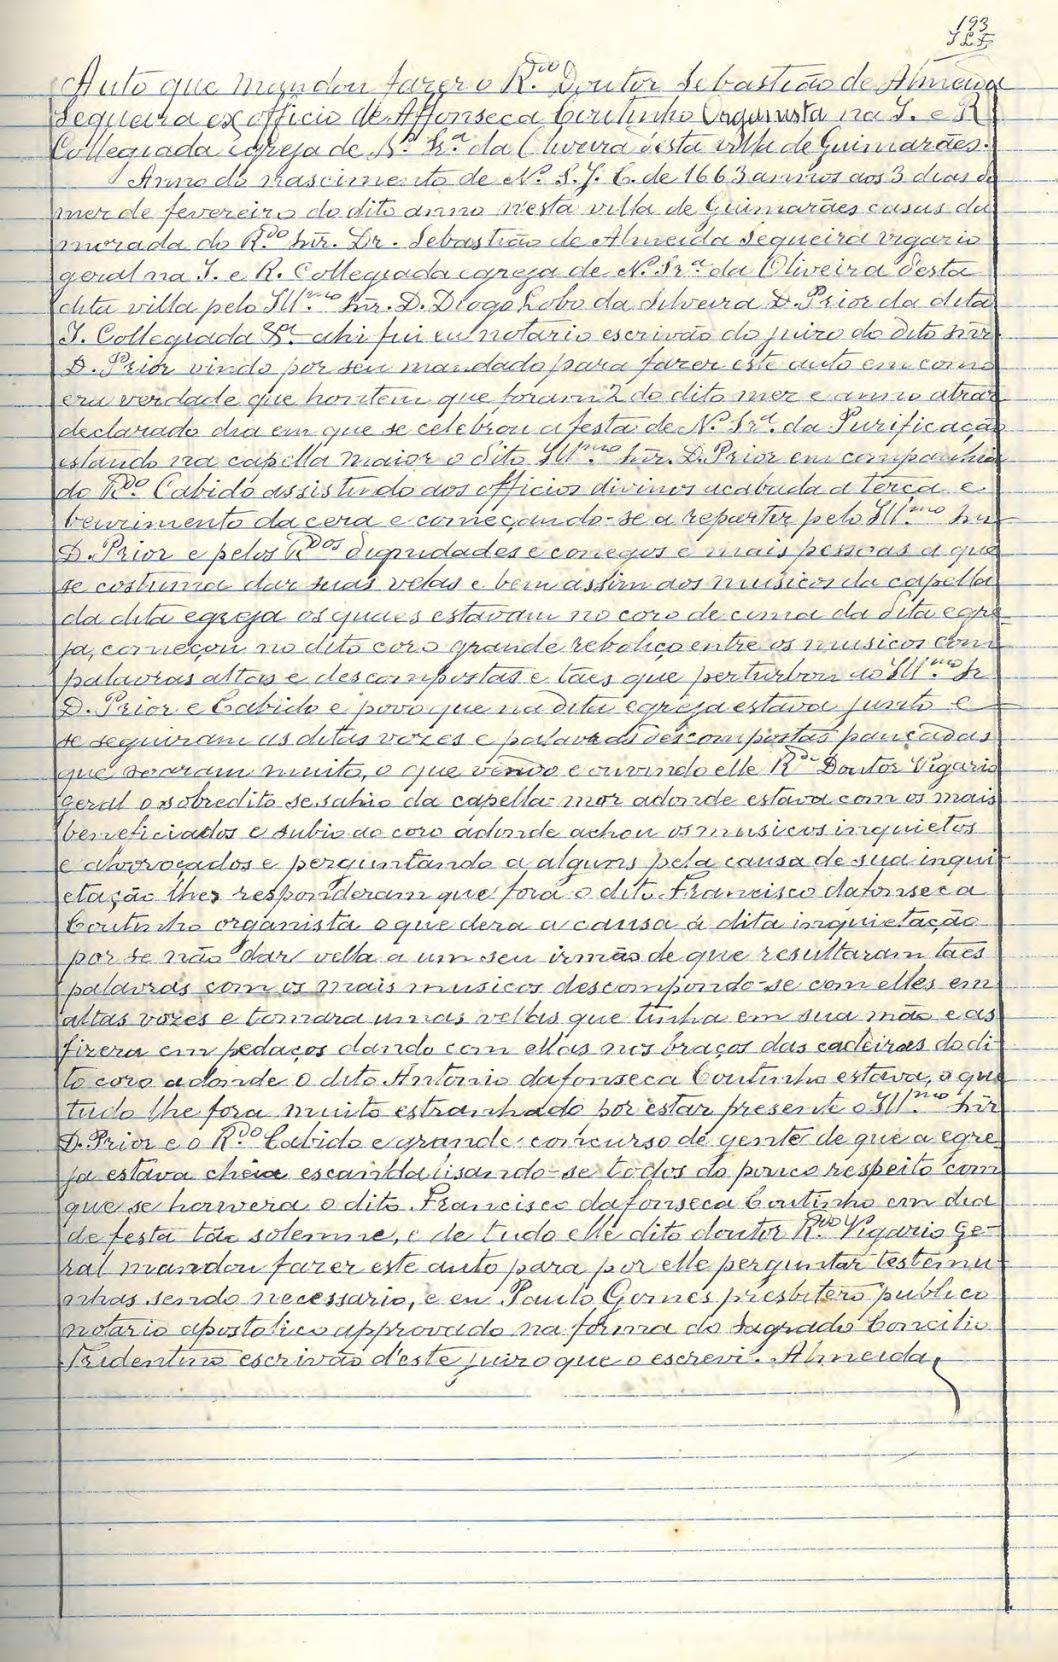 193
Auto que mandou fazer o R.do Doutor Sebastião de Almeida
Sequeira ex officio de Affonseca Coutinho Organista na I. e R.
Collegiada igreja de N.a Sr.a da Oliveira d'esta villa de Guimarães.
Anno do nascimento de N. S. J. C. de 1663 annos aos 3 dias do
mez de fevereiro do dito anno n'esta villa de Guimarães casas da
morada do R.do Snr. Dr. Sebastião de Almeida Sequeira vigario
geral na I. e R. Collegiada egreja de N. Sr.a da Oliveira d'esta
dita villa pelo Ill.mo Snr. D. Diogo Lobo da Silveira D. Prior da dita
I. Collegiada &.a ahi fui eu notario escrivão do juizo do dito snr
D. Prior vindo por seu mandado para fazer este auto em como
era verdade que hontem que foram 2 do dito mez e anno atraz
declarado dia em que se celebrou a festa de N. Sr.a da Purificação
estando na capella maior o dito Ill.mo Snr. D. Prior em companhia
do R.do Cabido assistindo aos officios divinos acabada a terça e
benzimento da cera e começando-se a repartir pelo Ill.mo Snr
D. Prior e pelos R.dos dignidades e conegos e mais pessoas a que
se costuma dar suas velas e bem assim aos musicos da capella
da dita egreja os quaes estavam no coro de cima da dita egre-
ja, começou no dito coro grande reboliço entre os musicos com
palavras altas e descompostas e taes que perturbou ao Ill.mo Sr
D. Prior e Cabido e povo que na dita egreja estava junto e
se seguiram as ditas vozes e palavras descompostas pancadas
que soaram muito, o que vendo e ouvindo elle R.do Doutor Vigario
geral o sobredito se sahio da capella-mor adonde estava com os mais
beneficiados e subio ao coro adonde achou os musicos inquietos
e alvoroçados e perguntando a alguns pela causa de sua inqui-
etação lhes responderam que fora o dito Francisco dafonseca
Coutinho organista o que dera a causa á dita inquietação
por se não dar vella a um seu irmão de que resultaram taes
palavras com os mais musicos descompondo-se com elles em
altas vozes e tomara umas vellas que tinha em sua mão e as
fizera em pedaços dando com ellas nos braços das cadeiras do di-
to coro adonde o dito Antonio dafonseca Coutinho estava, o que
tudo lhe fora muito estranhado por estar presente o Ill.mo Snr
D. Prior e o R.do Cabido e grande concurso de gente de que a egre-
ja estava cheia escandalisando-se todos do pouco respeito com
que se houvera o dito Francisco dafonseca Coutinho em dia
de festa tão solemne, e de tudo elle dito doutor R.do Vigario Ge-
ral mandou fazer este auto para por elle perguntar testemu-
nhas sendo necessario, e eu Paulo Gomes presbitero publico
notario apostolico approvado na forma do Sagrado Concilio
Tridentino escrivão d'este juizo que o escrevi. Almeida,